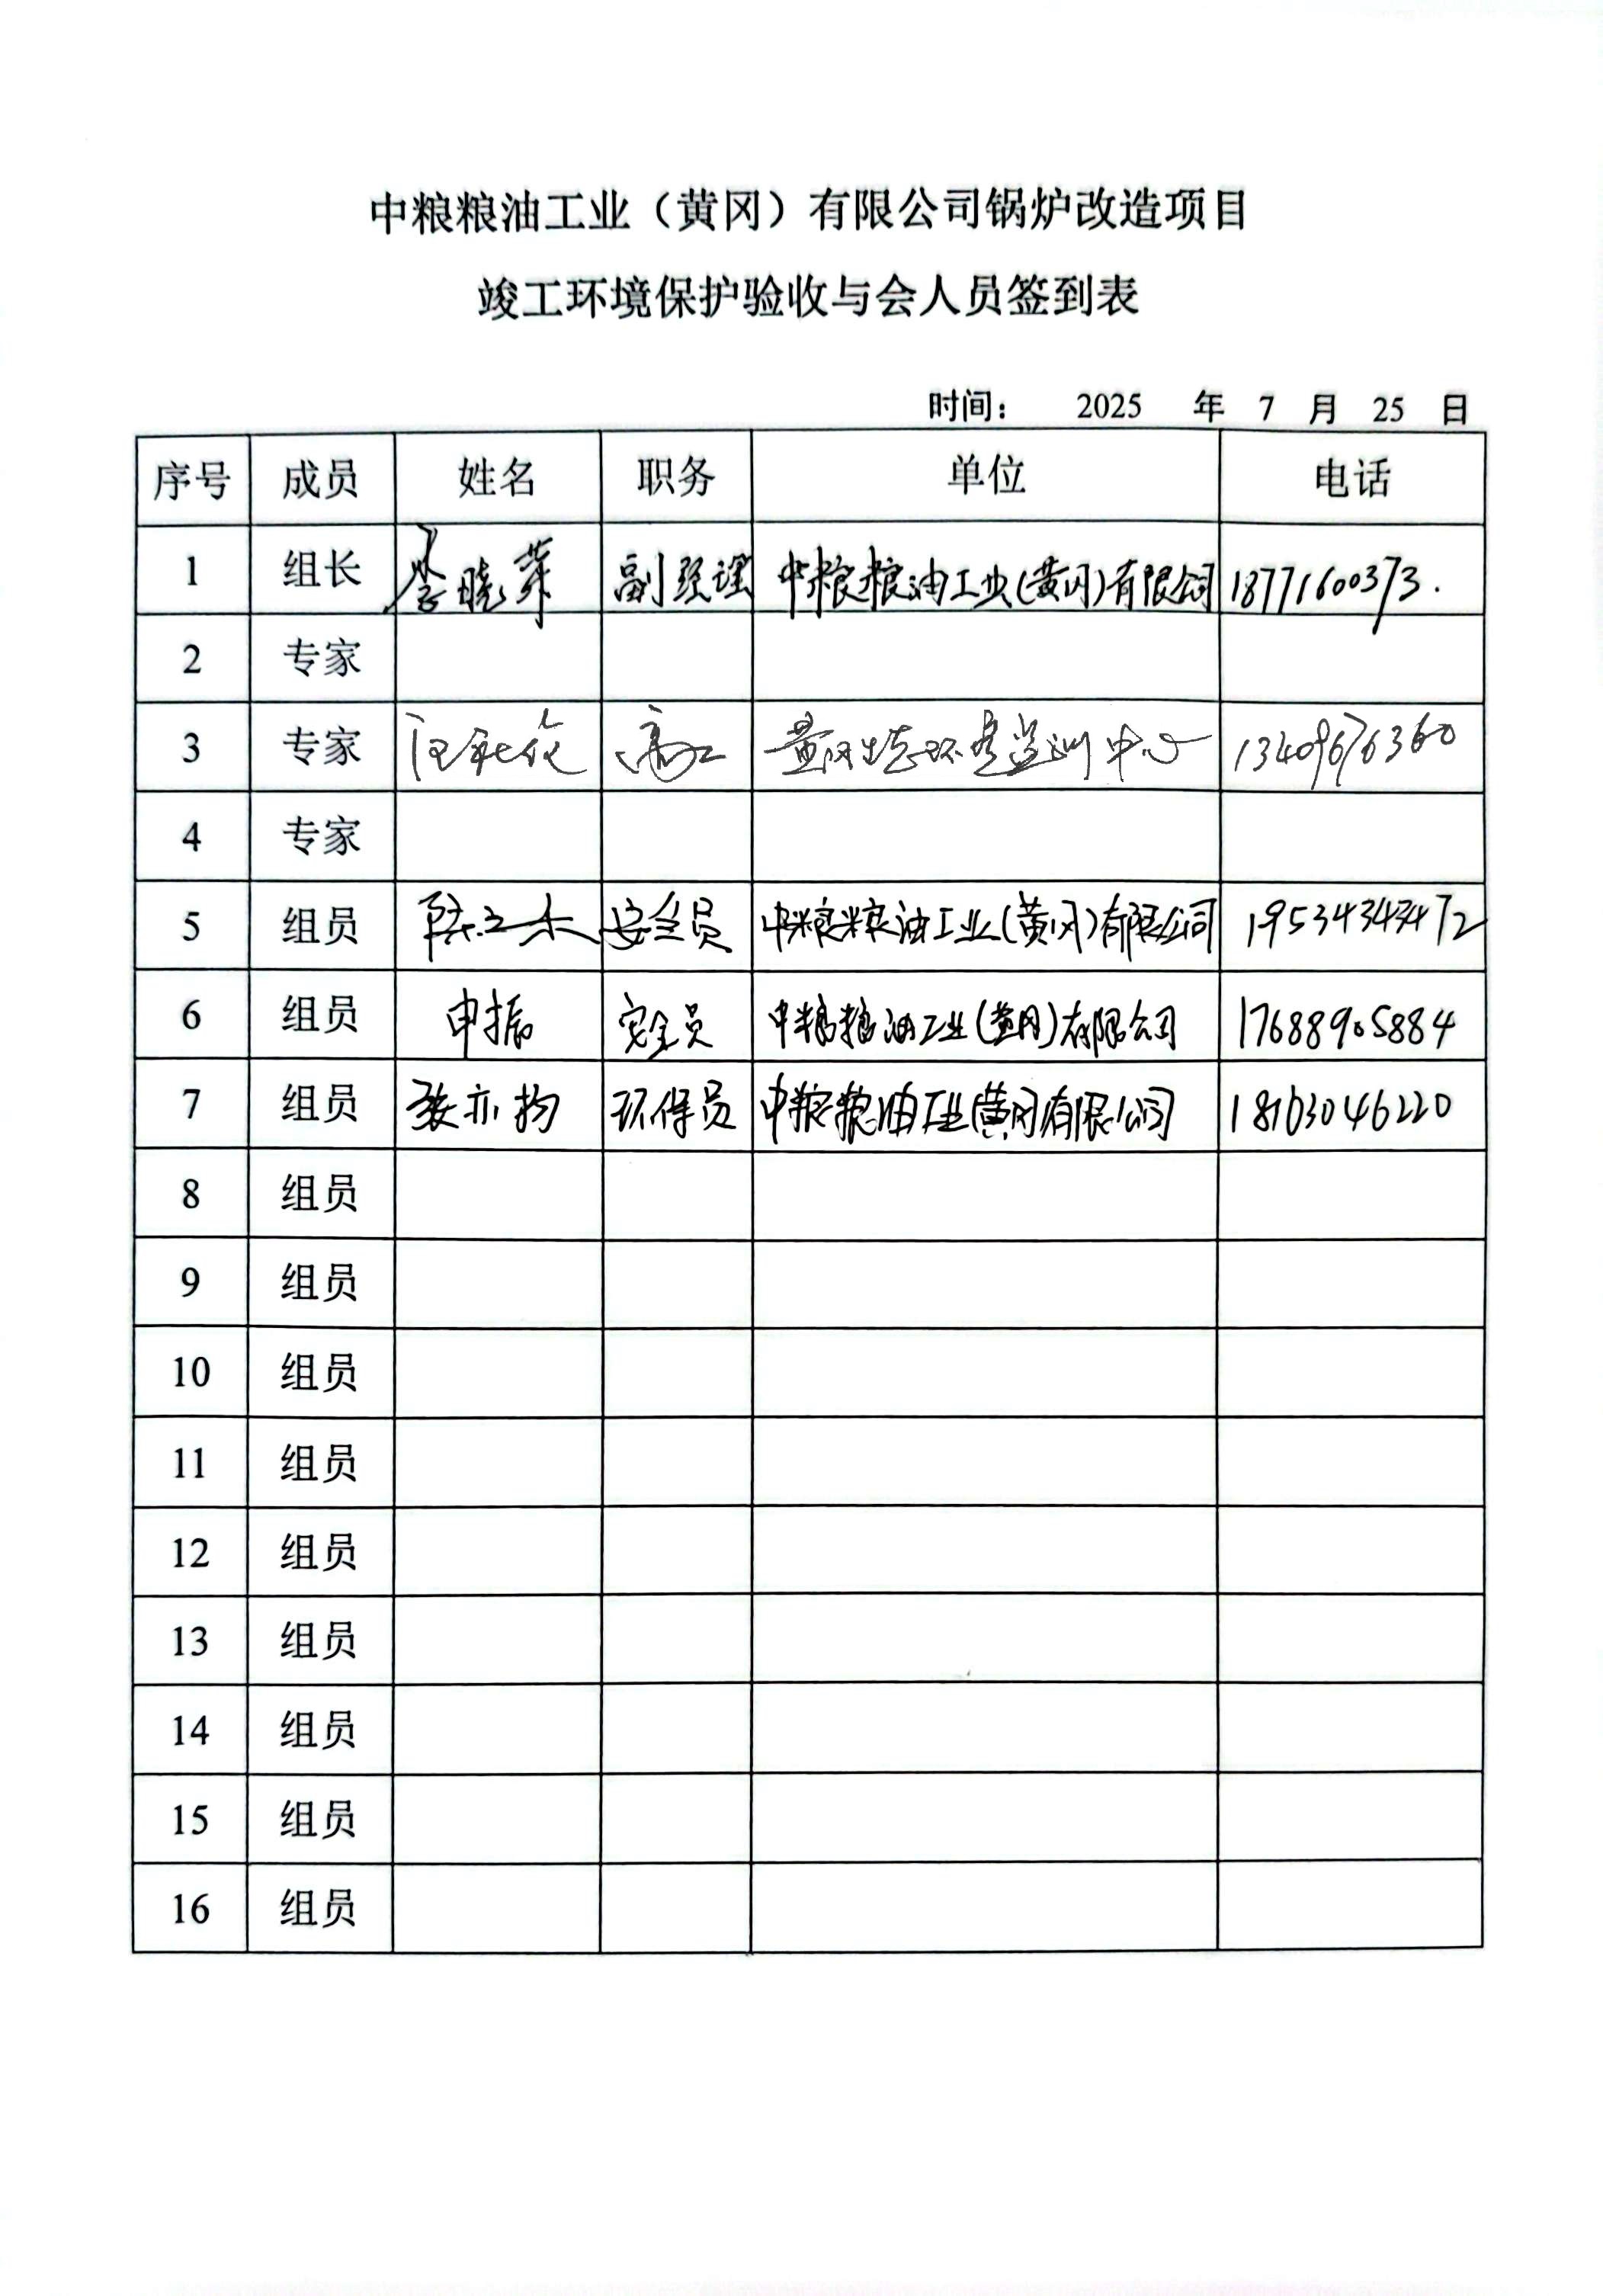 中粮粮油工业（黄冈）有限公司锅炉改造项目
竣工环境保护验收与会人员签到表
时间： 2025 年 7 月 25 日
序号 成员 姓名 职务 单位 电话
1 组长 李晓荣 副经理 中粮粮油工业(黄冈)有限公司 18771600373.
2 专家
3 专家 高工 黄冈生态环境监测中心 13409676360
4 专家
5 组员 陈立杰 安全员 中粮粮油工业(黄冈)有限公司 19534343472
6 组员 申振 安全员 中粮粮油工业(黄冈)有限公司 17688905884
7 组员 张亦扬 环保员 中粮粮油工业(黄冈)有限公司 18163046220
8 组员
9 组员
10 组员
11 组员
12 组员
13 组员
14 组员
15 组员
16 组员